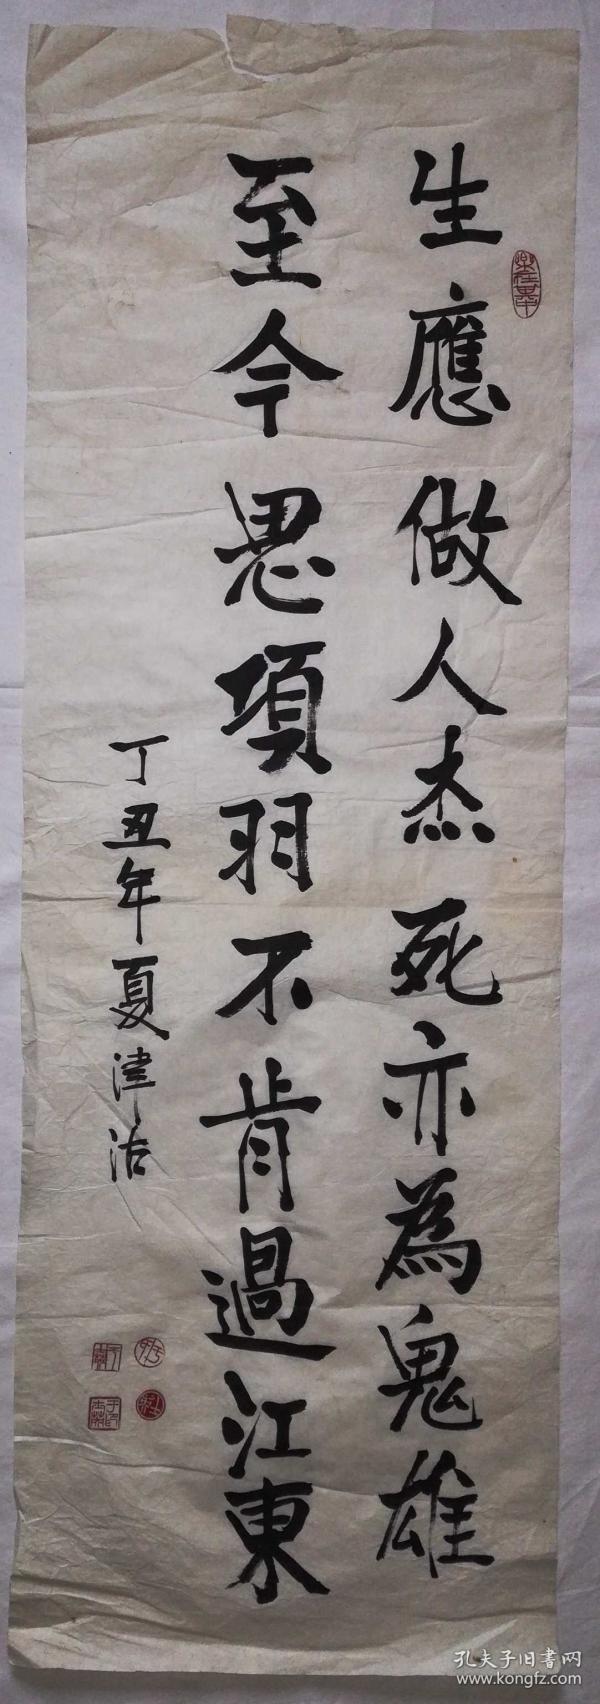 生應做人杰死亦為鬼雄
至今思項羽不肯過江東
丁丑年夏津沽
孔夫子旧書网
www.kongfz.com